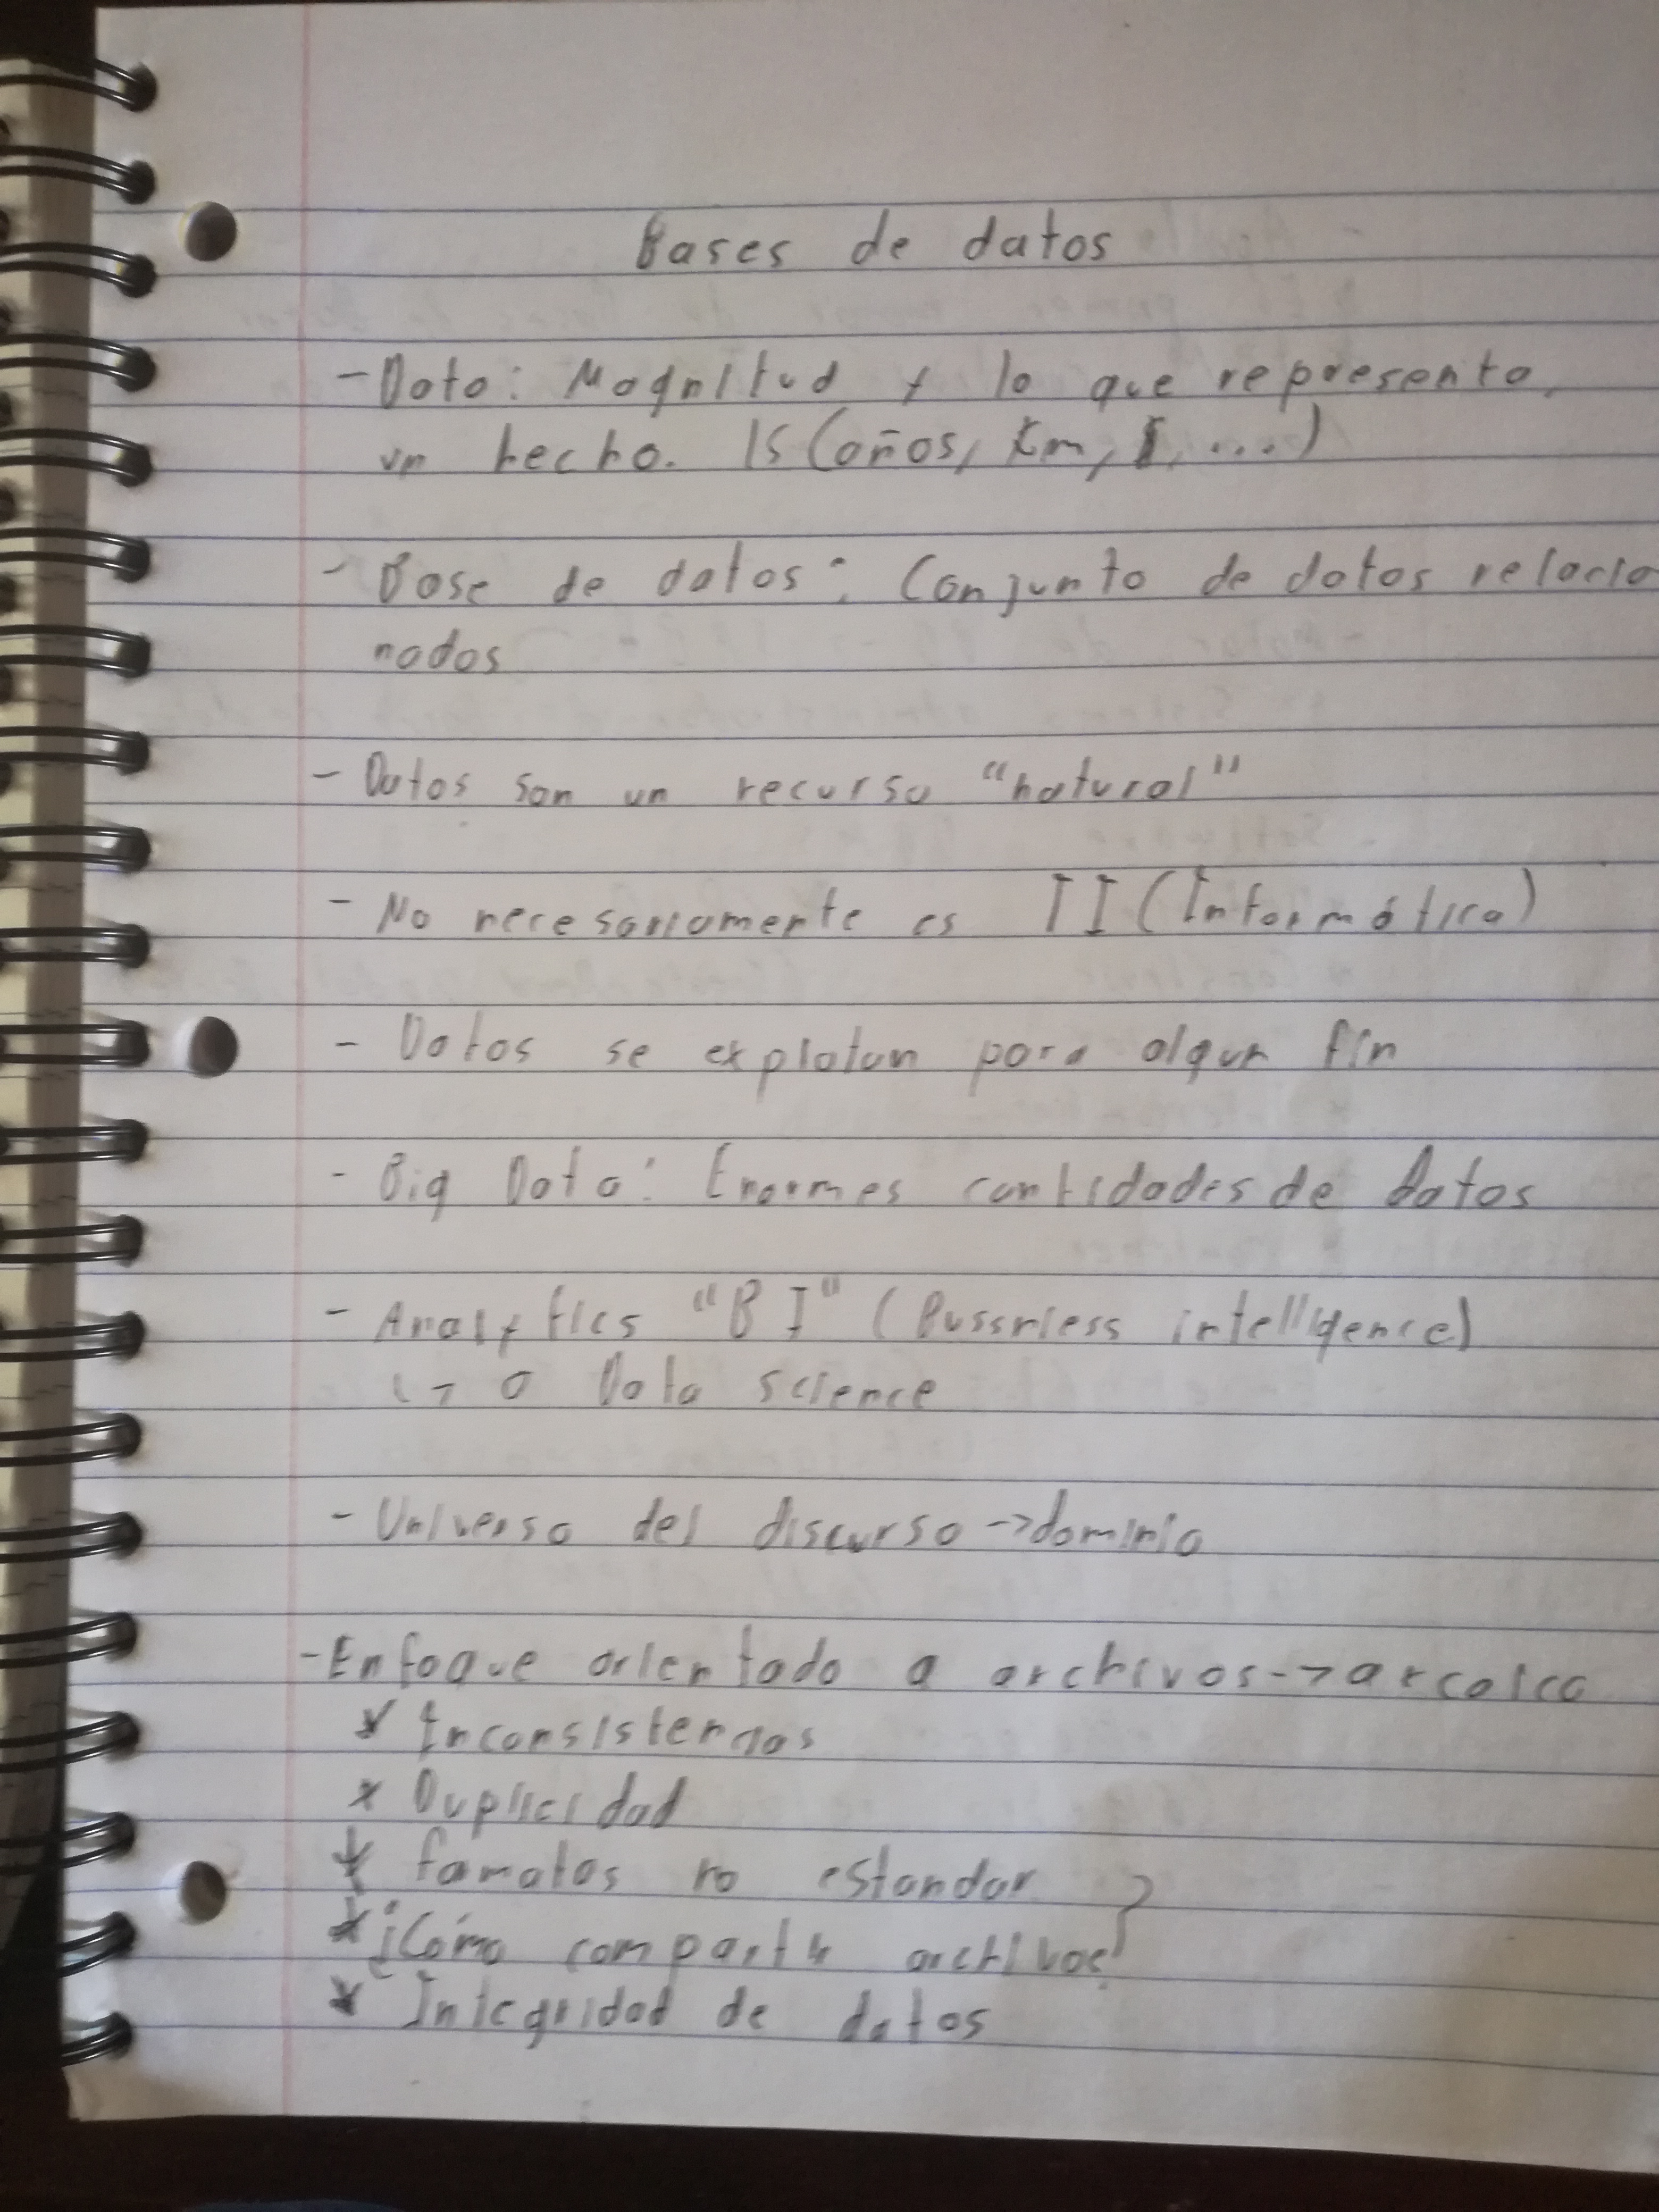 Bases de datos
- Dato: Magnitud y lo que representa,
un hecho. 15 (años, km, $, ...)
- Base de datos: Conjunto de datos relacio
nados
- Datos son un recurso "natural"
- No necesariamente es II (Informática)
- Datos se explotan para algun fin
- Big Data: Enormes cantidades de datos
- Analytics "BI" (Bussniess intelligence)
↳ o Data science
- Universo del discurso -> dominio
- Enfoque orientado a archivos -> arcaico
* Inconsistencias
* Duplicidad
* famatos no estandar
* ¿Cómo compartir archivos?
* Integridad de datos